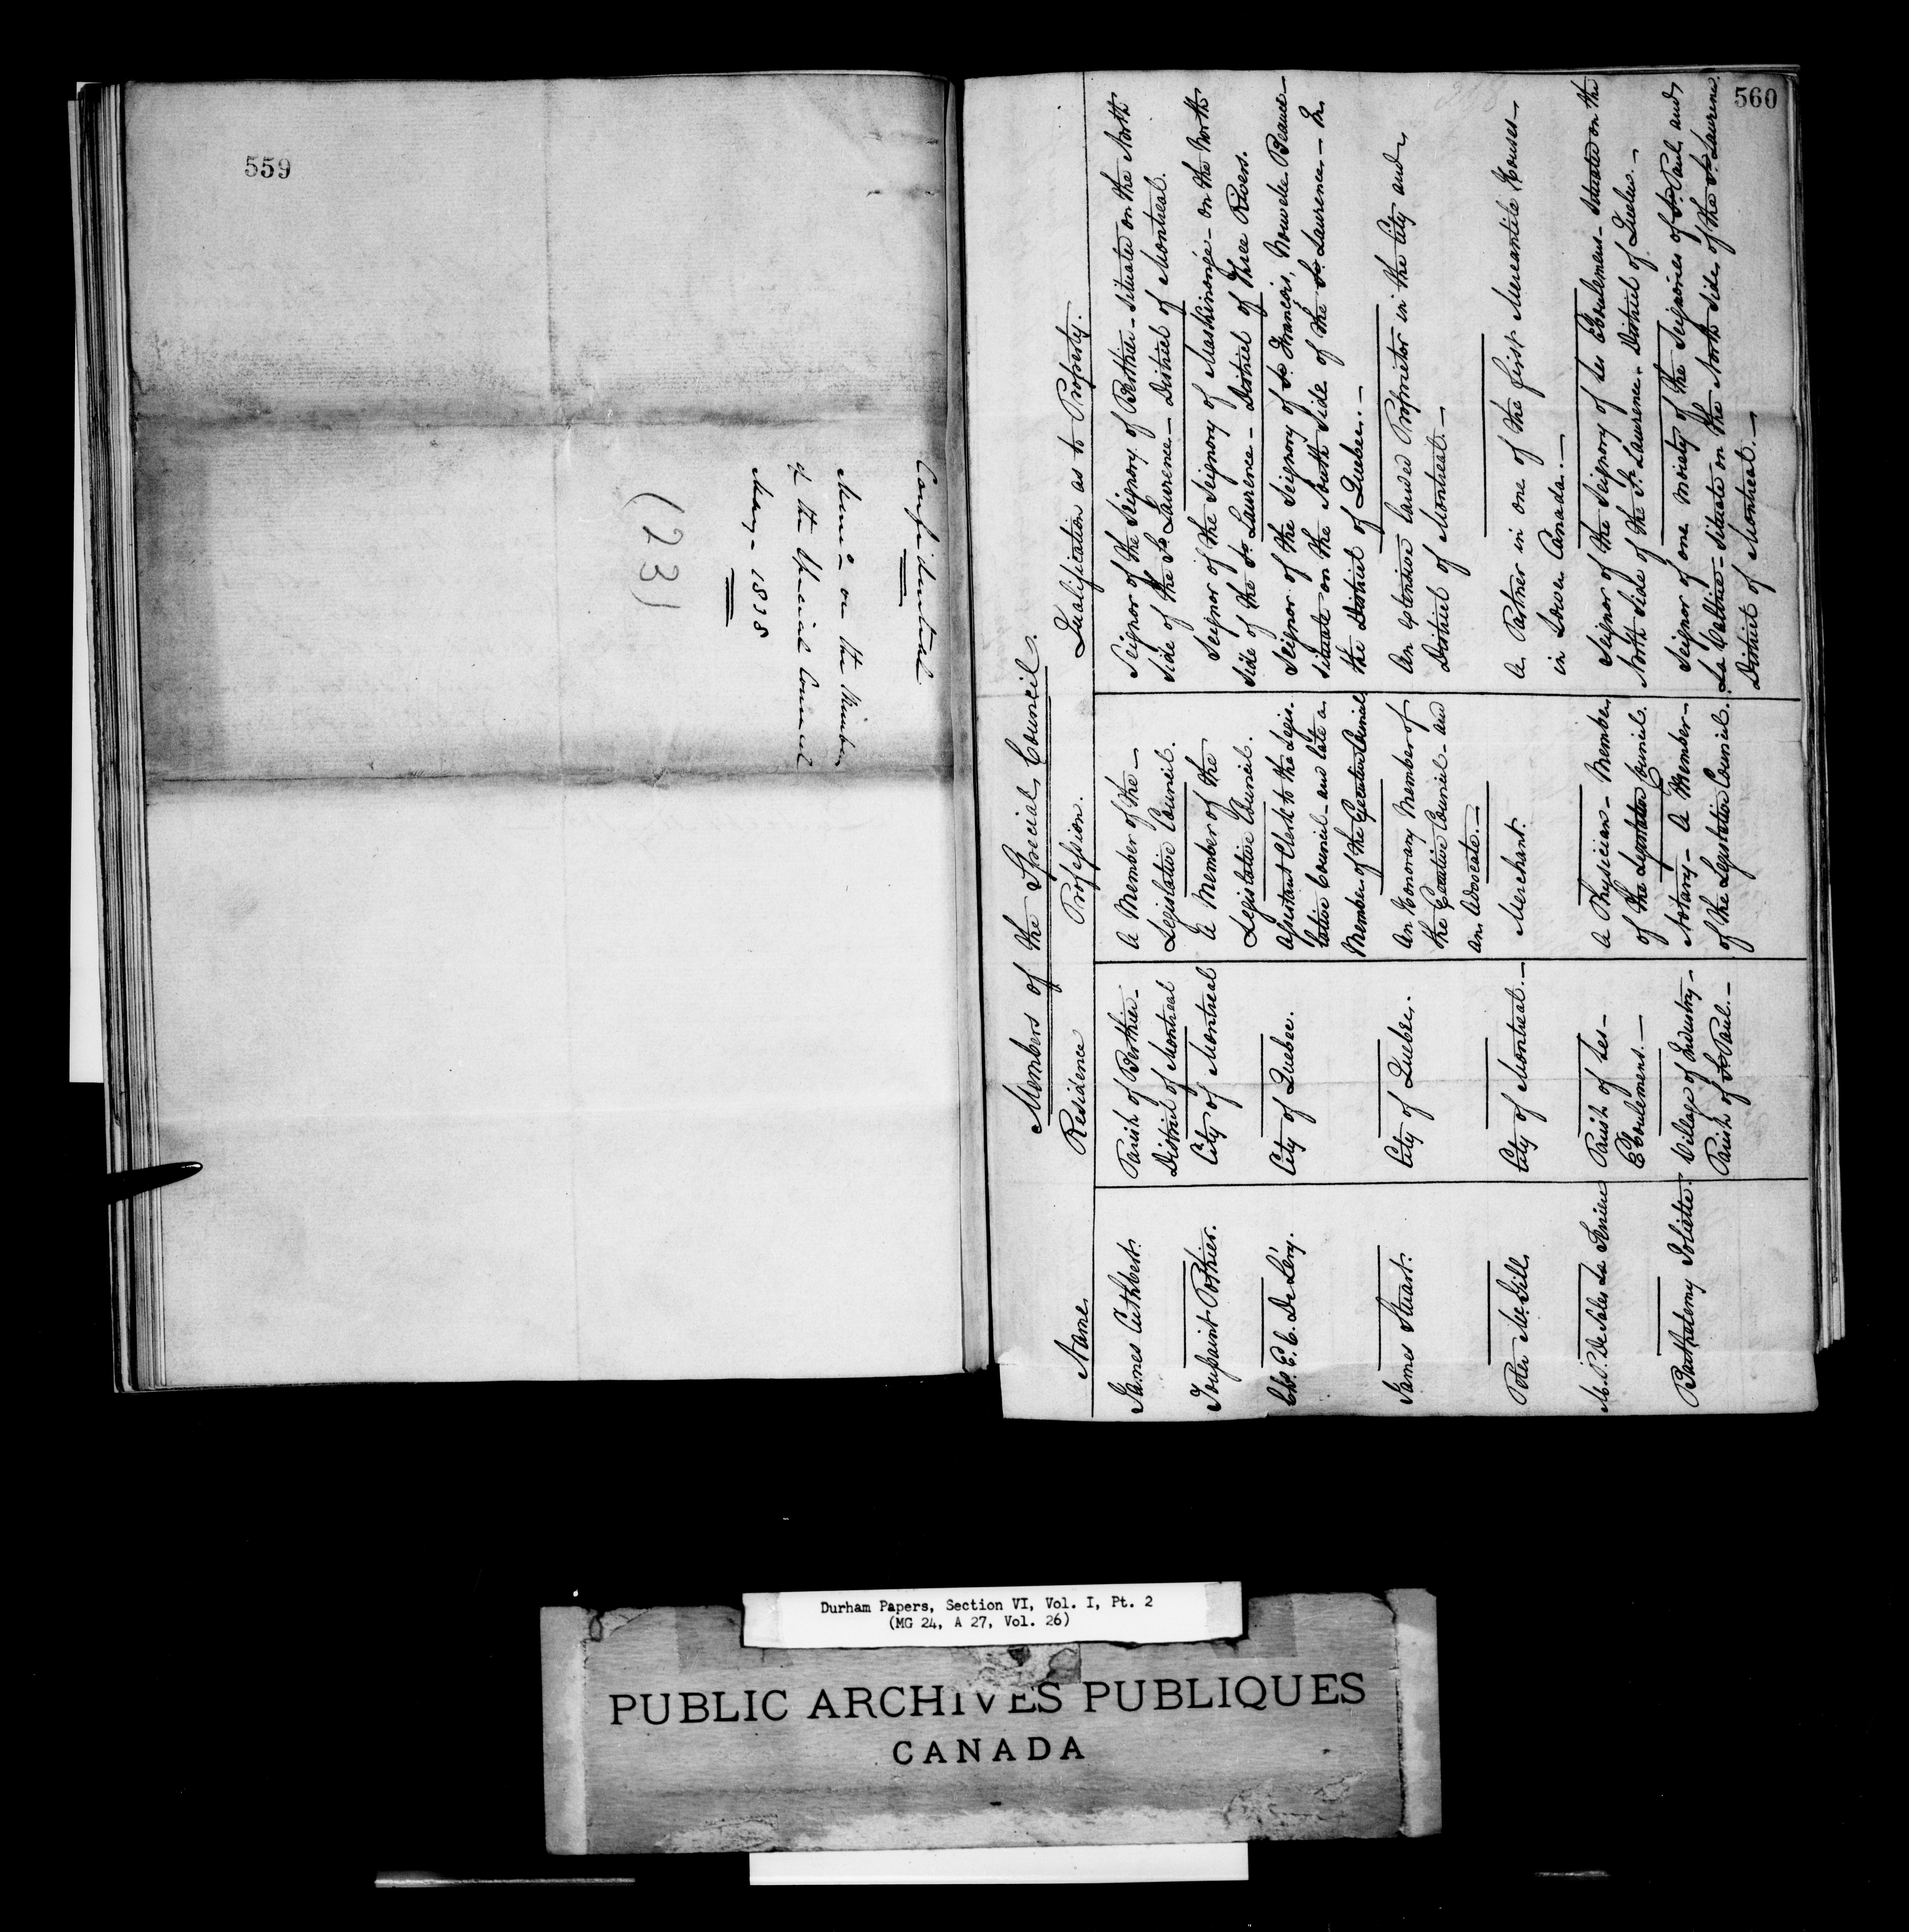 559
Confidential
Memo on the Members
of the Special Council
May 1838
(23)
560
Members of the Special Council.
Name
Residence
Profession.
Qualification as to Property.
James Cuthbert.
Parish of Berthier-
District of Montreal
A Member of the-
Legislative Council.
Seignor of the Seignory of Berthier-situated on the North
side of the St Laurence-District of Montreal.
Toussaint Pothier.
City of Montreal
A Member of the
Legislative Council.
Seignor of the Seignory of Maskinongé-on the North
side of the St Laurence-District of Three Rivers.
Chs. E. C. De Léry.
City of Quebec.
Assistant Clerk to the Legis-
lative Council-and late a
Member of the Executive Council
Seignor of the Seignory of St François, Nouvelle Beauce-
situate on the South Side of the St Laurence-In
the District of Quebec.-
James Stuart.
City of Quebec.
An Honorary Member of
the Executive Council-and
an Advocate.-
An extensive landed Proprietor in the City and
District of Montreal.-
Peter McGill
City of Montreal.-
Merchant.
A Partner in one of the first Mercantile Houses-
in Lower Canada.-
M. P. De Sales La Terriere
Parish of Les-
Eboulemens.-
A Physician-Member
of the Legislative Council.
Seignor of the Seignory of Les Eboulemens-situated on the
North Side of the St Laurence-District of Quebec.-
Barthelemy Joliette.
Village of Industry-
Parish of St Paul.-
Notary-A Member-
of the Legislative Council.
Seignor of one moiety of the Seignories of St Paul and
La Valtrie-situate on the North Side of the St Laurence
District of Montreal.-
Durham Papers, Section VI, Vol. I, Pt. 2
(MG 24, A 27, Vol. 26)
PUBLIC ARCHIVES PUBLIQUES
CANADA